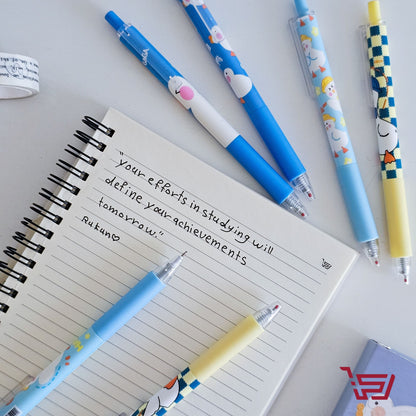 "your efforts in studying will
define your achievements
tomorrow."
Rukun♡